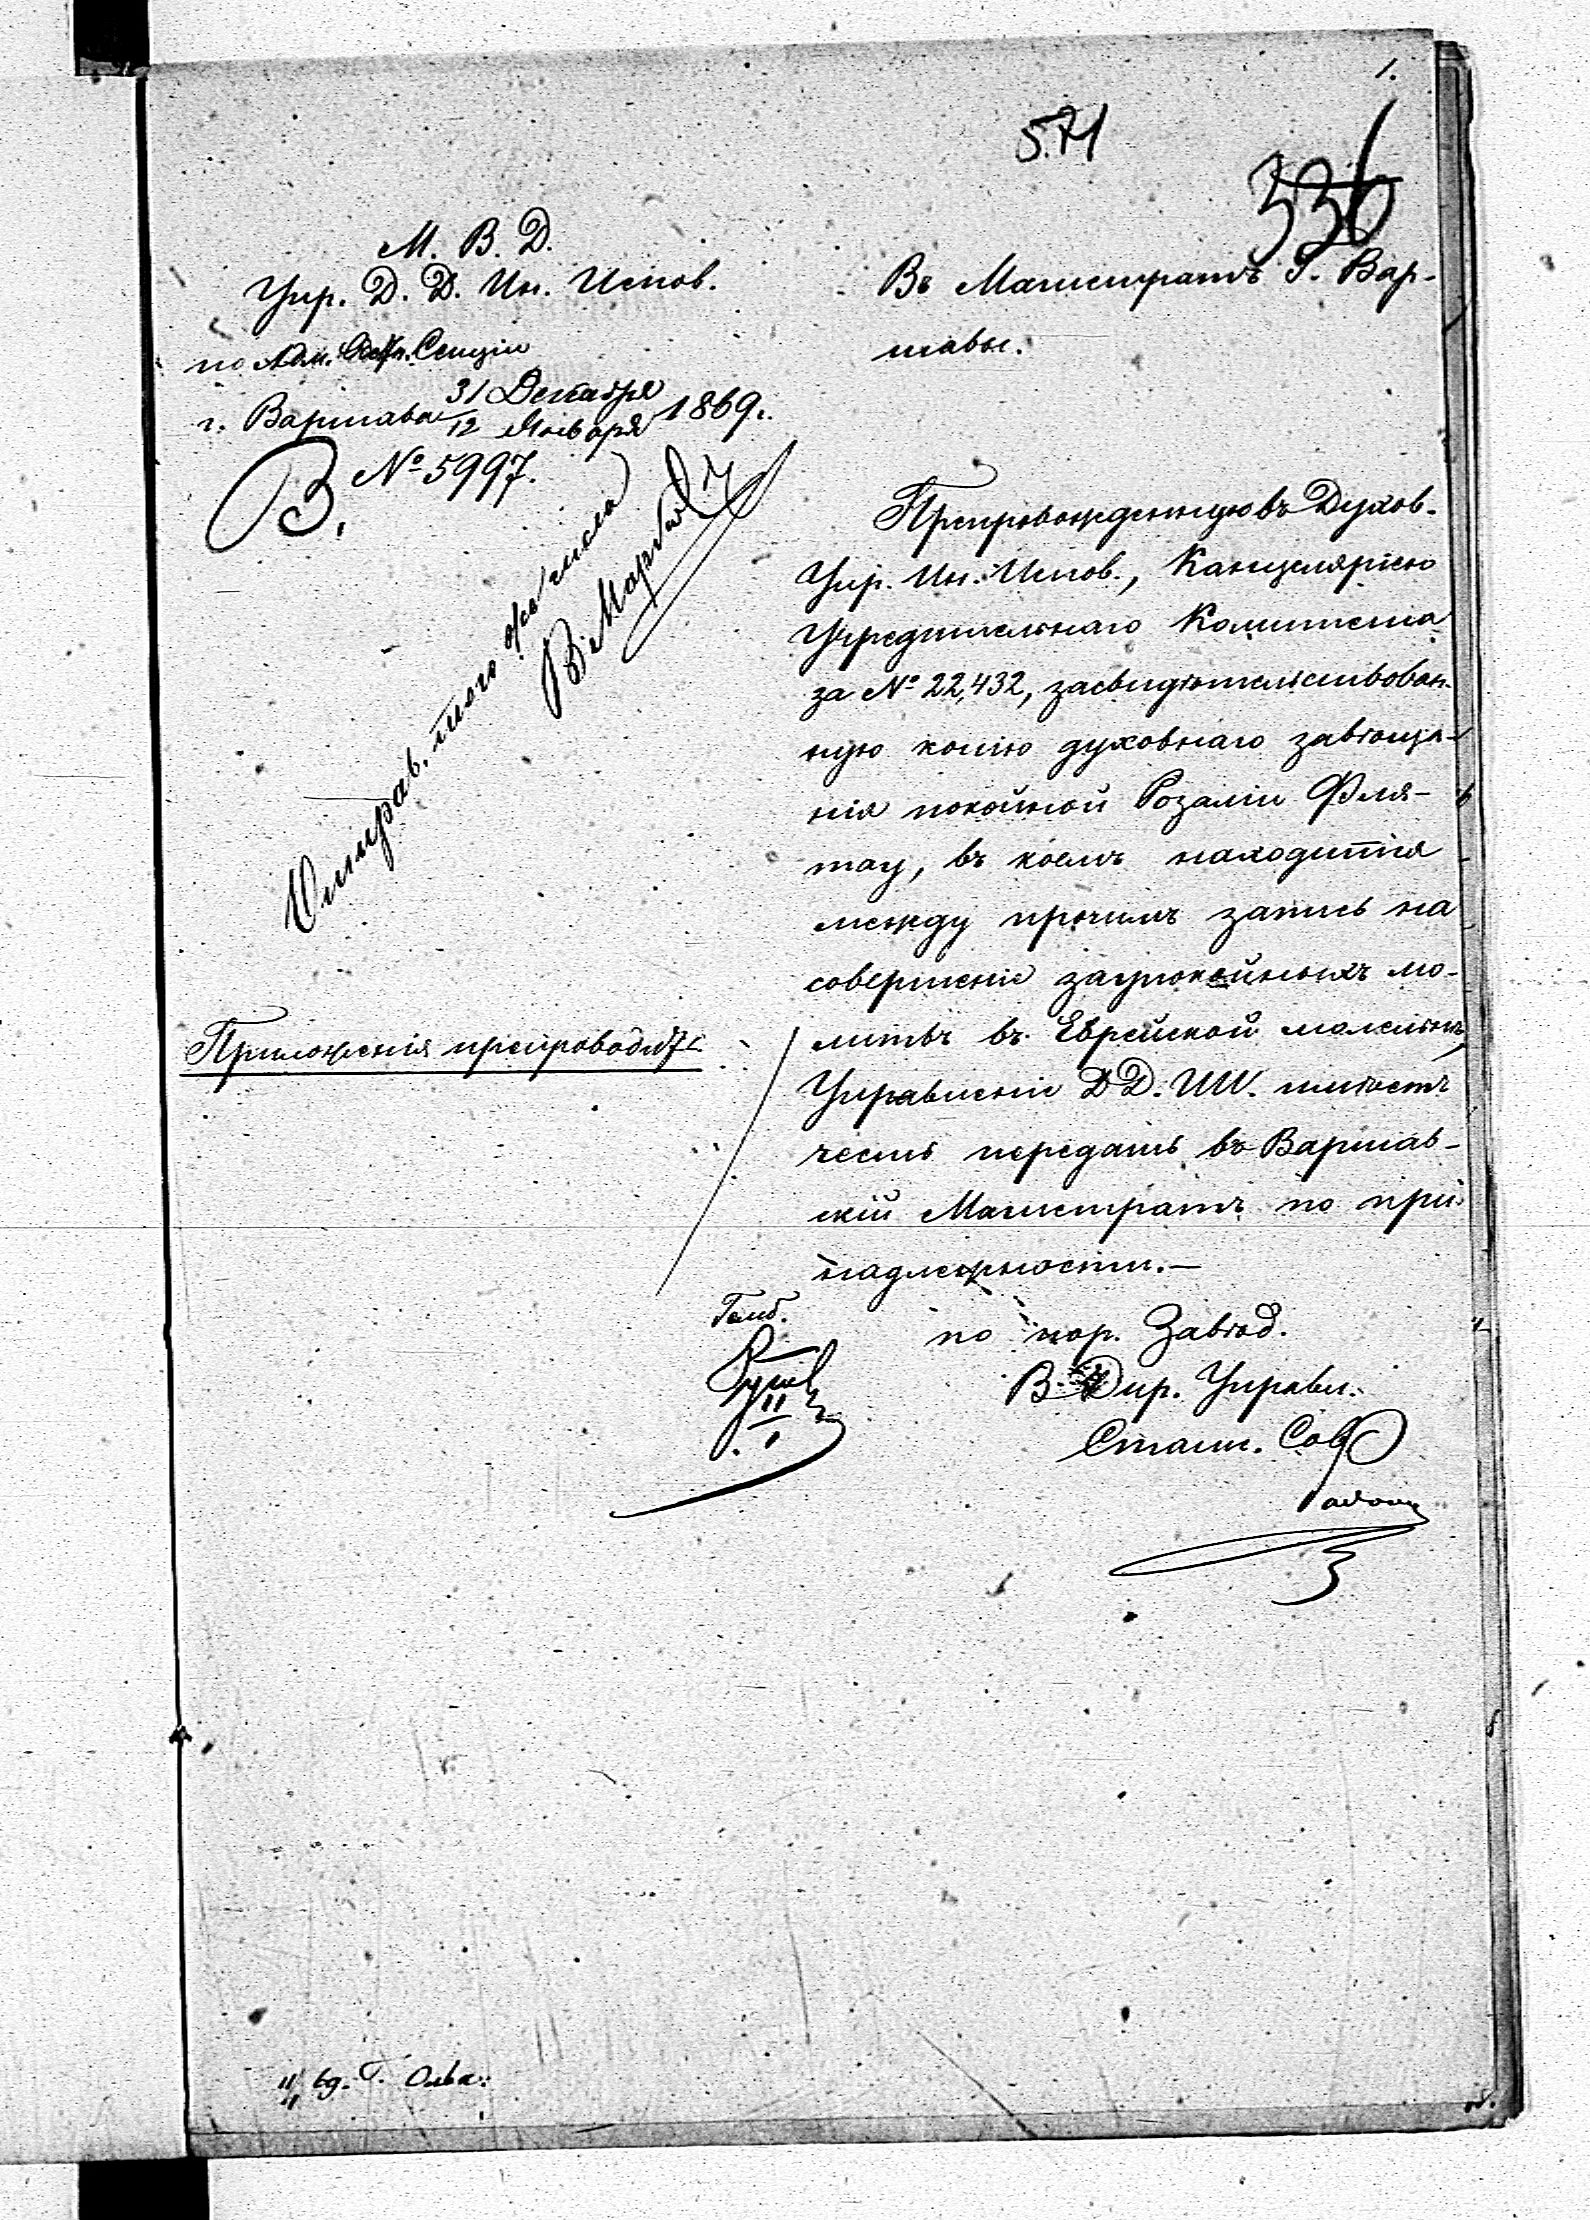 1.
571
336
М. В. Д.
Упр. Д. Д. Ин. Испов.
по Адм. Секціи
31 Декабря
г. Варшава 1869.
12 Января
№ 5997.
В.
Отправ. того же числа
Въ Магистратъ Г. Вар-
шавы.
Препровожденную въ Духов.
Упр. Ин. Испов., Канцеляріею
Учредительнаго Комитета
за № 22,432, засвидѣтельствован-
ную копію духовнаго завѣща-
нія покойной Розаліи Фля-
тау, въ коемъ находится
между прочимъ запись на
совершеніе заупокойныхъ мо-
литвъ въ Еврейской молельнѣ,
Управленіе ДД. ИИ. имѣетъ
честь передать въ Варшав-
скій Магистратъ по при-
надлежности.—
Приложенія препроводить.
по пор. Завѣд.
В. Дир. Управл.
Статс. Сов.